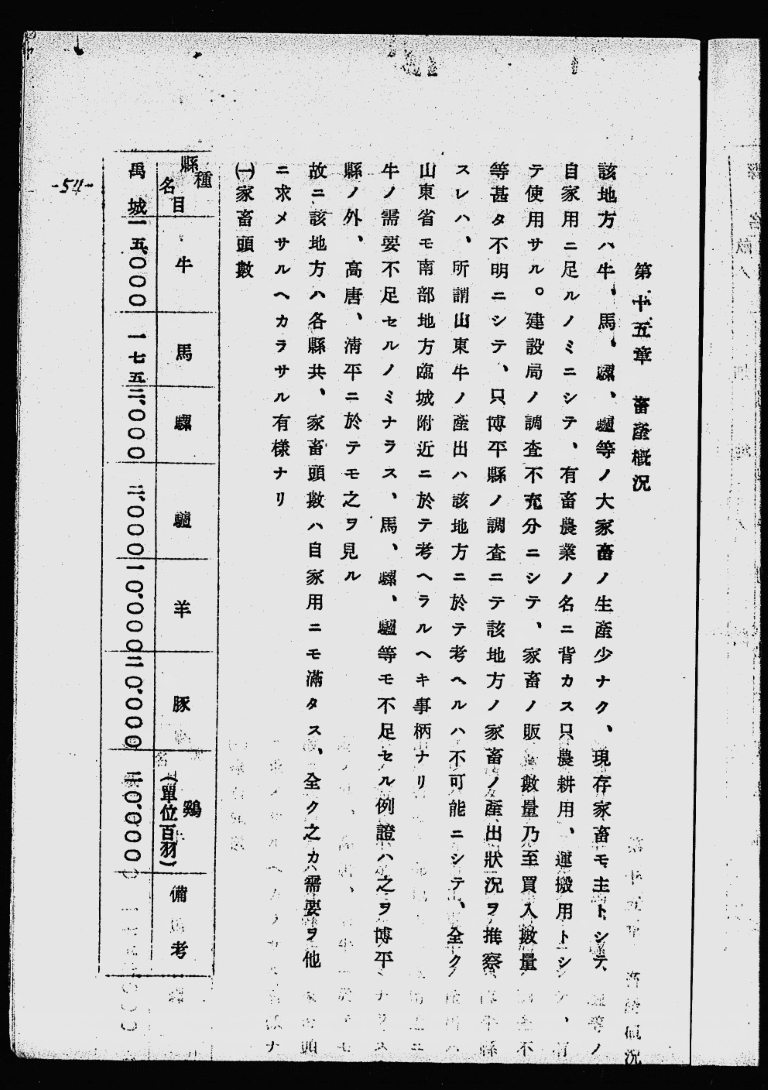 第十五章 畜產概況
該地方ハ牛、馬、騾、驢等ノ大家畜ノ生產少ナク、現存家畜モ主トシテ
自家用ニ足ルノミニシテ、有畜農業ノ名ニ背カス只農耕用、運搬用トシ
テ使用サル。建設局ノ調查不充分ニシテ、家畜ノ販數量乃至買入數量
等甚タ不明ニシテ、只博平縣ノ調查ニテ該地方ノ家畜ノ產出狀況ヲ推察
スレハ、所謂山東牛ノ產出ハ該地方ニ於テ考ヘルハ不可能ニシテ、全ク
山東省モ南部地方臨城附近ニ於テ考ヘラルヘキ事柄ナリ
牛ノ需要不足セルノミナラス、馬、騾、驢等モ不足セル例證ハ之ヲ博平
縣ノ外、高唐、清平ニ於テモ之ヲ見ル
故ニ該地方ハ各縣共、家畜頭數ハ自家用ニモ滿タス、全ク之カ需要ヲ他
ニ求メサルヘカラサル有樣ナリ
㈠家畜頭數
種目 縣名 牛 馬 騾 驢 羊 豚 鷄(單位百羽) 備考
禹城 一五、〇〇〇 一七五 〇〇〇 〇〇〇 一〇、〇〇〇 〇、〇〇〇 〇、〇〇〇
-54-